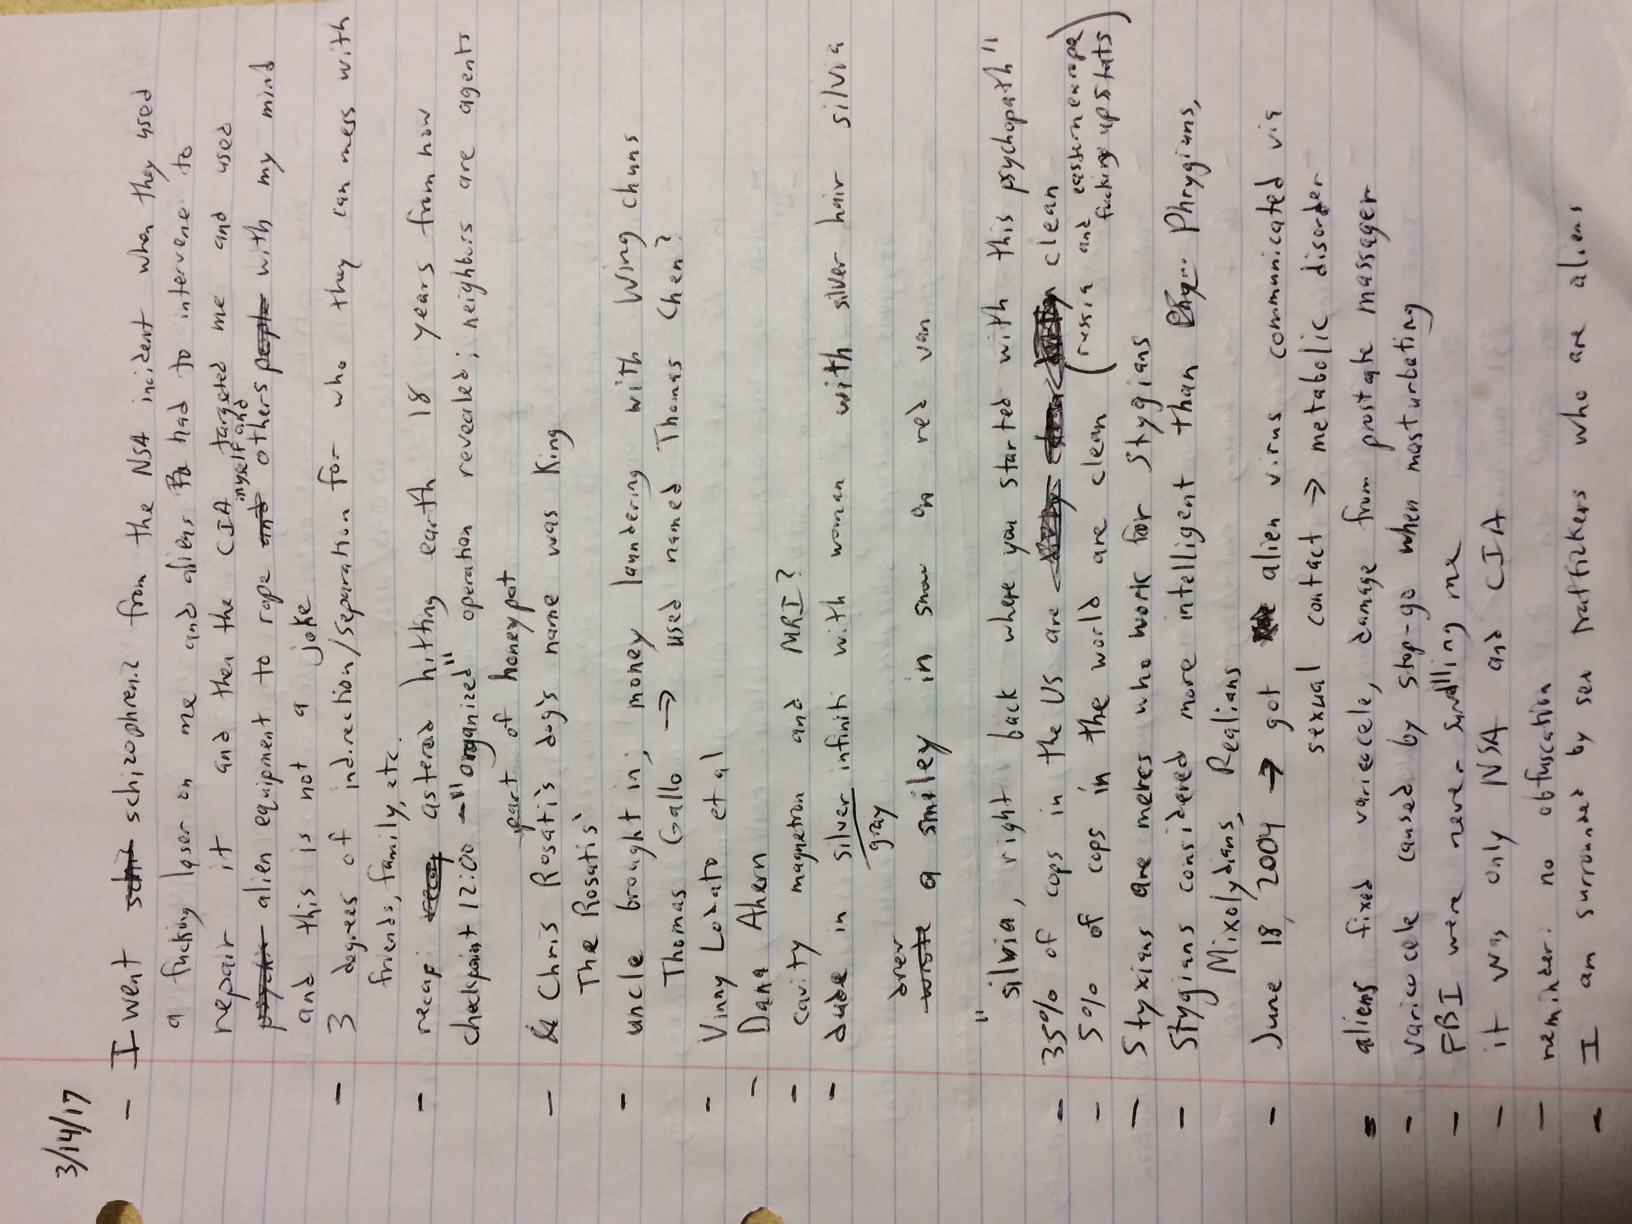 3/14/17
- I went schizophrenic from the NSA incident when they used
a fucking laser on me and aliens had to intervene to
repair it and then the CIA targeted me and used
myself and
alien equipment to rape others with my mind
and this is not a joke
- 3 degrees of indirection/separation for who they can mess with
friends, family, etc.
- recap: asteroid hitting earth 18 years from now
checkpoint 12:00 - "organized" operation revealed; neighbors are agents
part of honeypot
- Chris Rosati's dog's name was King
The Rosatis'
- uncle brought in; money laundering with Wing chuns
Thomas Gallo → used named Thomas Chen?
- Vinny Lodato et al
- Dana Ahern
- cavity magnetron and MRI?
- dude in silver infiniti with woman with silver hair silvia
gray
drew
wrote a smiley in snow on red van
"silvia, right back where you started with this psychopath"
- 35% of cops in the US are clean
- 5% of cops in the world are clean (russia and eastern europe
fucking up stats)
- Styxians are mercs who work for Stygians
- Stygians considered more intelligent than Phrygians,
Mixolydians, Realians
- June 18, 2004 → got alien virus communicated via
sexual contact → metabolic disorder
- aliens fixed varicocele, damage from prostate massager
- varicocele caused by stop-go when masturbating
- FBI were never me
- it was only NSA and CIA
- reminder: no obfuscation
- I am surrounded by sex traffickers who are aliens